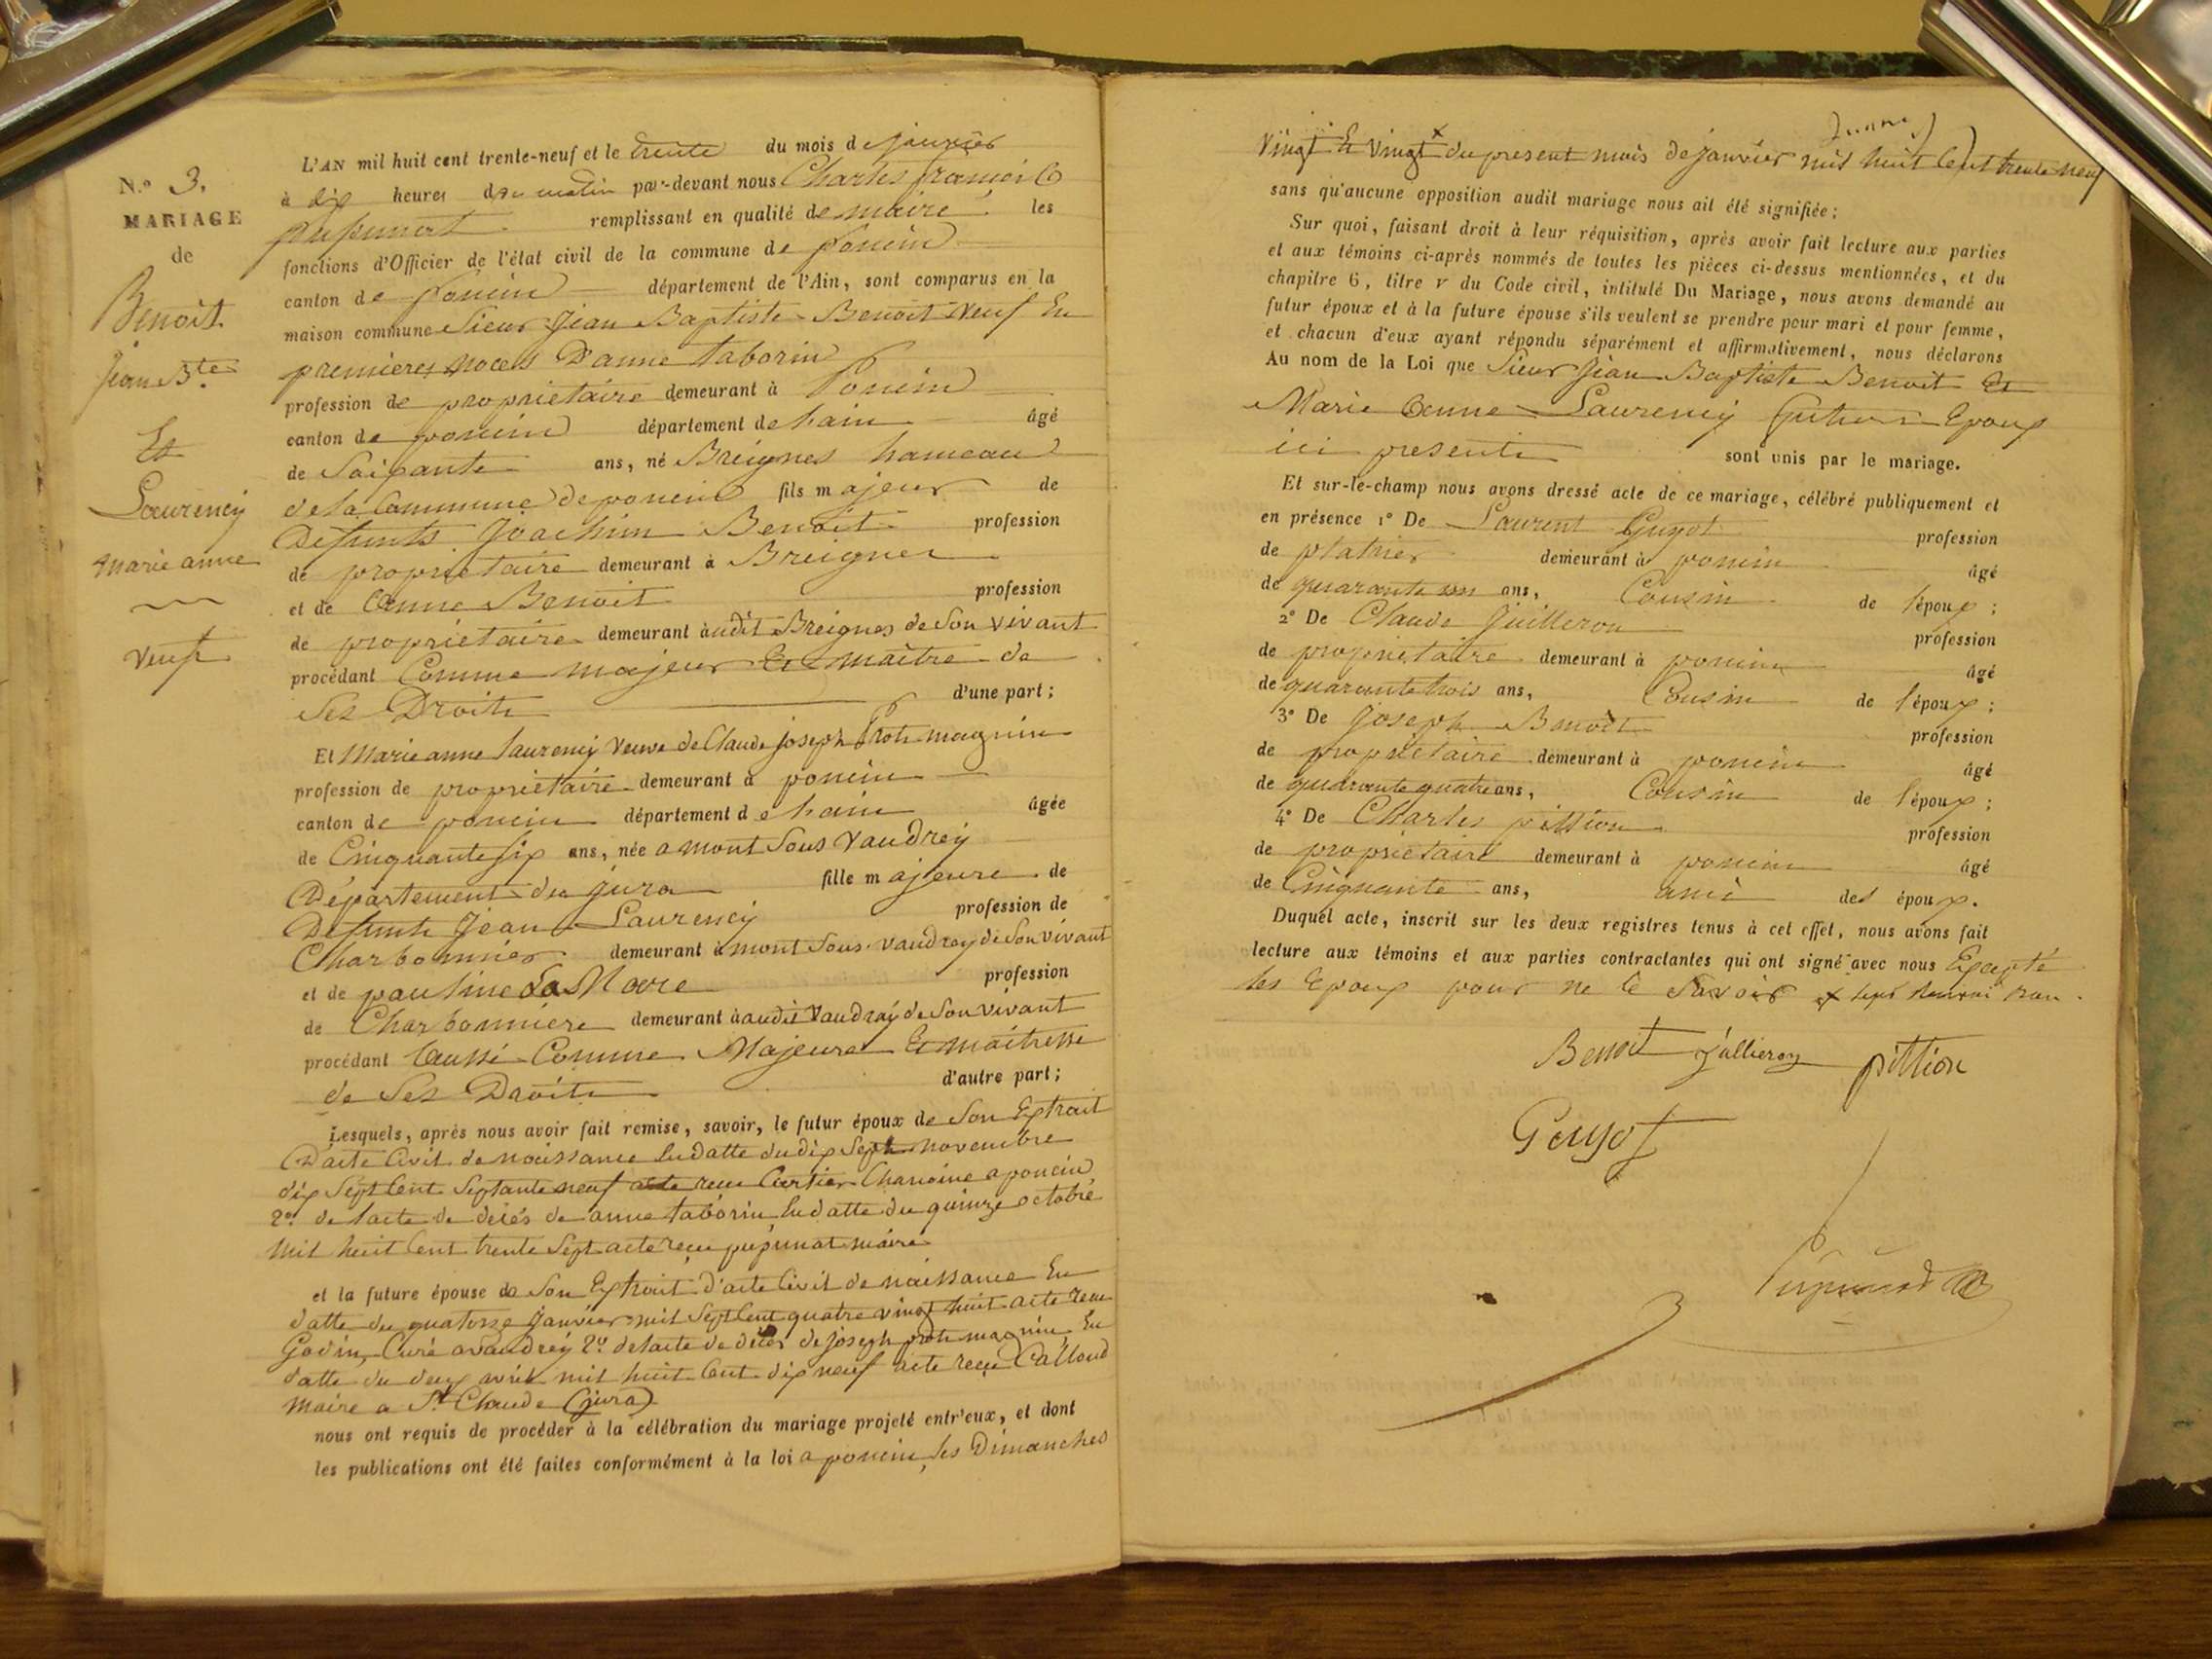 N.º 3.
MARIAGE
de
Benoit
jean Bte
Et
Laurency
marie anne
veufs
L'AN mil huit cent trente-neuf et le trente du mois de janvier
à dix heures du matin par-devant nous Charles françois
pupunat remplissant en qualité de maire les
fonctions d'Officier de l'état civil de la commune de poncin
canton de poncin département de l'Ain, sont comparus en la
maison commune Sieur Jean Baptiste Benoit veuf En
premieres noces D'anne taborin
profession de propriétaire demeurant à poncin
canton de poncin département de hain âgé
de Soixante ans, né Breignes hameau
de la Commune de poncin fils majeur de
Defunts Joachim Benoit profession
de propriétaire demeurant à Breignes
et de Anne Benoit profession
de propriétaire demeurant audit Breignes de Son vivant
procédant Comme majeur Et maître de
Ses Droits d'une part;
Et Marie anne laurency veuve de Claude joseph Prote magnin
profession de propriétaire demeurant à poncin
canton de poncin département de hain âgée
de Cinquante Six ans, née a mont Sous Vaudrey
Département du jura fille majeure de
Defunts Jean Laurency profession de
Charbonnier demeurant à mont Sous vaudrey de Son vivant
et de pauline profession
de Charbonniere demeurant à audit Vaudray de Son vivant
procédant aussi Comme Majeure Et maitresse
de Ses Droits d'autre part;
Lesquels, après nous avoir fait remise, savoir, le futur époux de Son Extrait
D'acte Civil de naissance En datte du dix Sept novembre
dix Sept Cent Septante neuf acte reçu Cartier Chanoine a poncin
2º de lacte de décés de anne taborin En datte du quinze octobre
mil huit Cent trente Sept acte reçu pupunat maire
et la future épouse de Son Extrait D'acte Civil de naissance En
datte du quatorze Janvier mil Sept Cent quatre vingt huit acte reçu
Godin, Curé a Vaudrey 2º de lacte de décés de joseph prote magnin En
datte du deux avril mil huit Cent dix neuf acte reçu Calloud
maire a St Claude (jura)
nous ont requis de procéder à la célébration du mariage projeté entr'eux, et dont
les publications ont été faites conformément à la loi a poncin les Dimanches
vingt Et vingt du present mois de janvier mil huit Cent trente neuf
sans qu'aucune opposition audit mariage nous ait été signifiée;
Sur quoi, faisant droit à leur réquisition, après avoir fait lecture aux parties
et aux témoins ci-après nommés de toutes les pièces ci-dessus mentionnées, et du
chapitre 6, titre v du Code civil, intitulé Du Mariage, nous avons demandé au
futur époux et à la future épouse s'ils veulent se prendre pour mari et pour femme,
et chacun d'eux ayant répondu séparément et affirmativement, nous déclarons
Au nom de la Loi que Sieur Jean Baptiste Benoit Et
Marie Anne Laurency futurs Epoux
ici presents sont unis par le mariage.
Et sur-le-champ nous avons dressé acte de ce mariage, célébré publiquement et
en présence 1º De Laurent Guyot profession
de platrier demeurant à poncin âgé
de quarante un ans, Cousin de l'époux;
2º De Claude Juilleron profession
de propriétaire demeurant à poncin âgé
de quarante trois ans, Cousin de l'époux;
3º De joseph Benoit profession
de propriétaire demeurant à poncin âgé
de quarante quatre ans, Cousin de l'époux;
4º De Charles pittion profession
de propriétaire demeurant à poncin âgé
de Cinquante ans, ami des époux.
Duquel acte, inscrit sur les deux registres tenus à cet effet, nous avons fait
lecture aux témoins et aux parties contractantes qui ont signé avec nous Excepté
les Epoux pour ne le Savoir
Benoit Jullieron pittion
Guyot
Pupunat